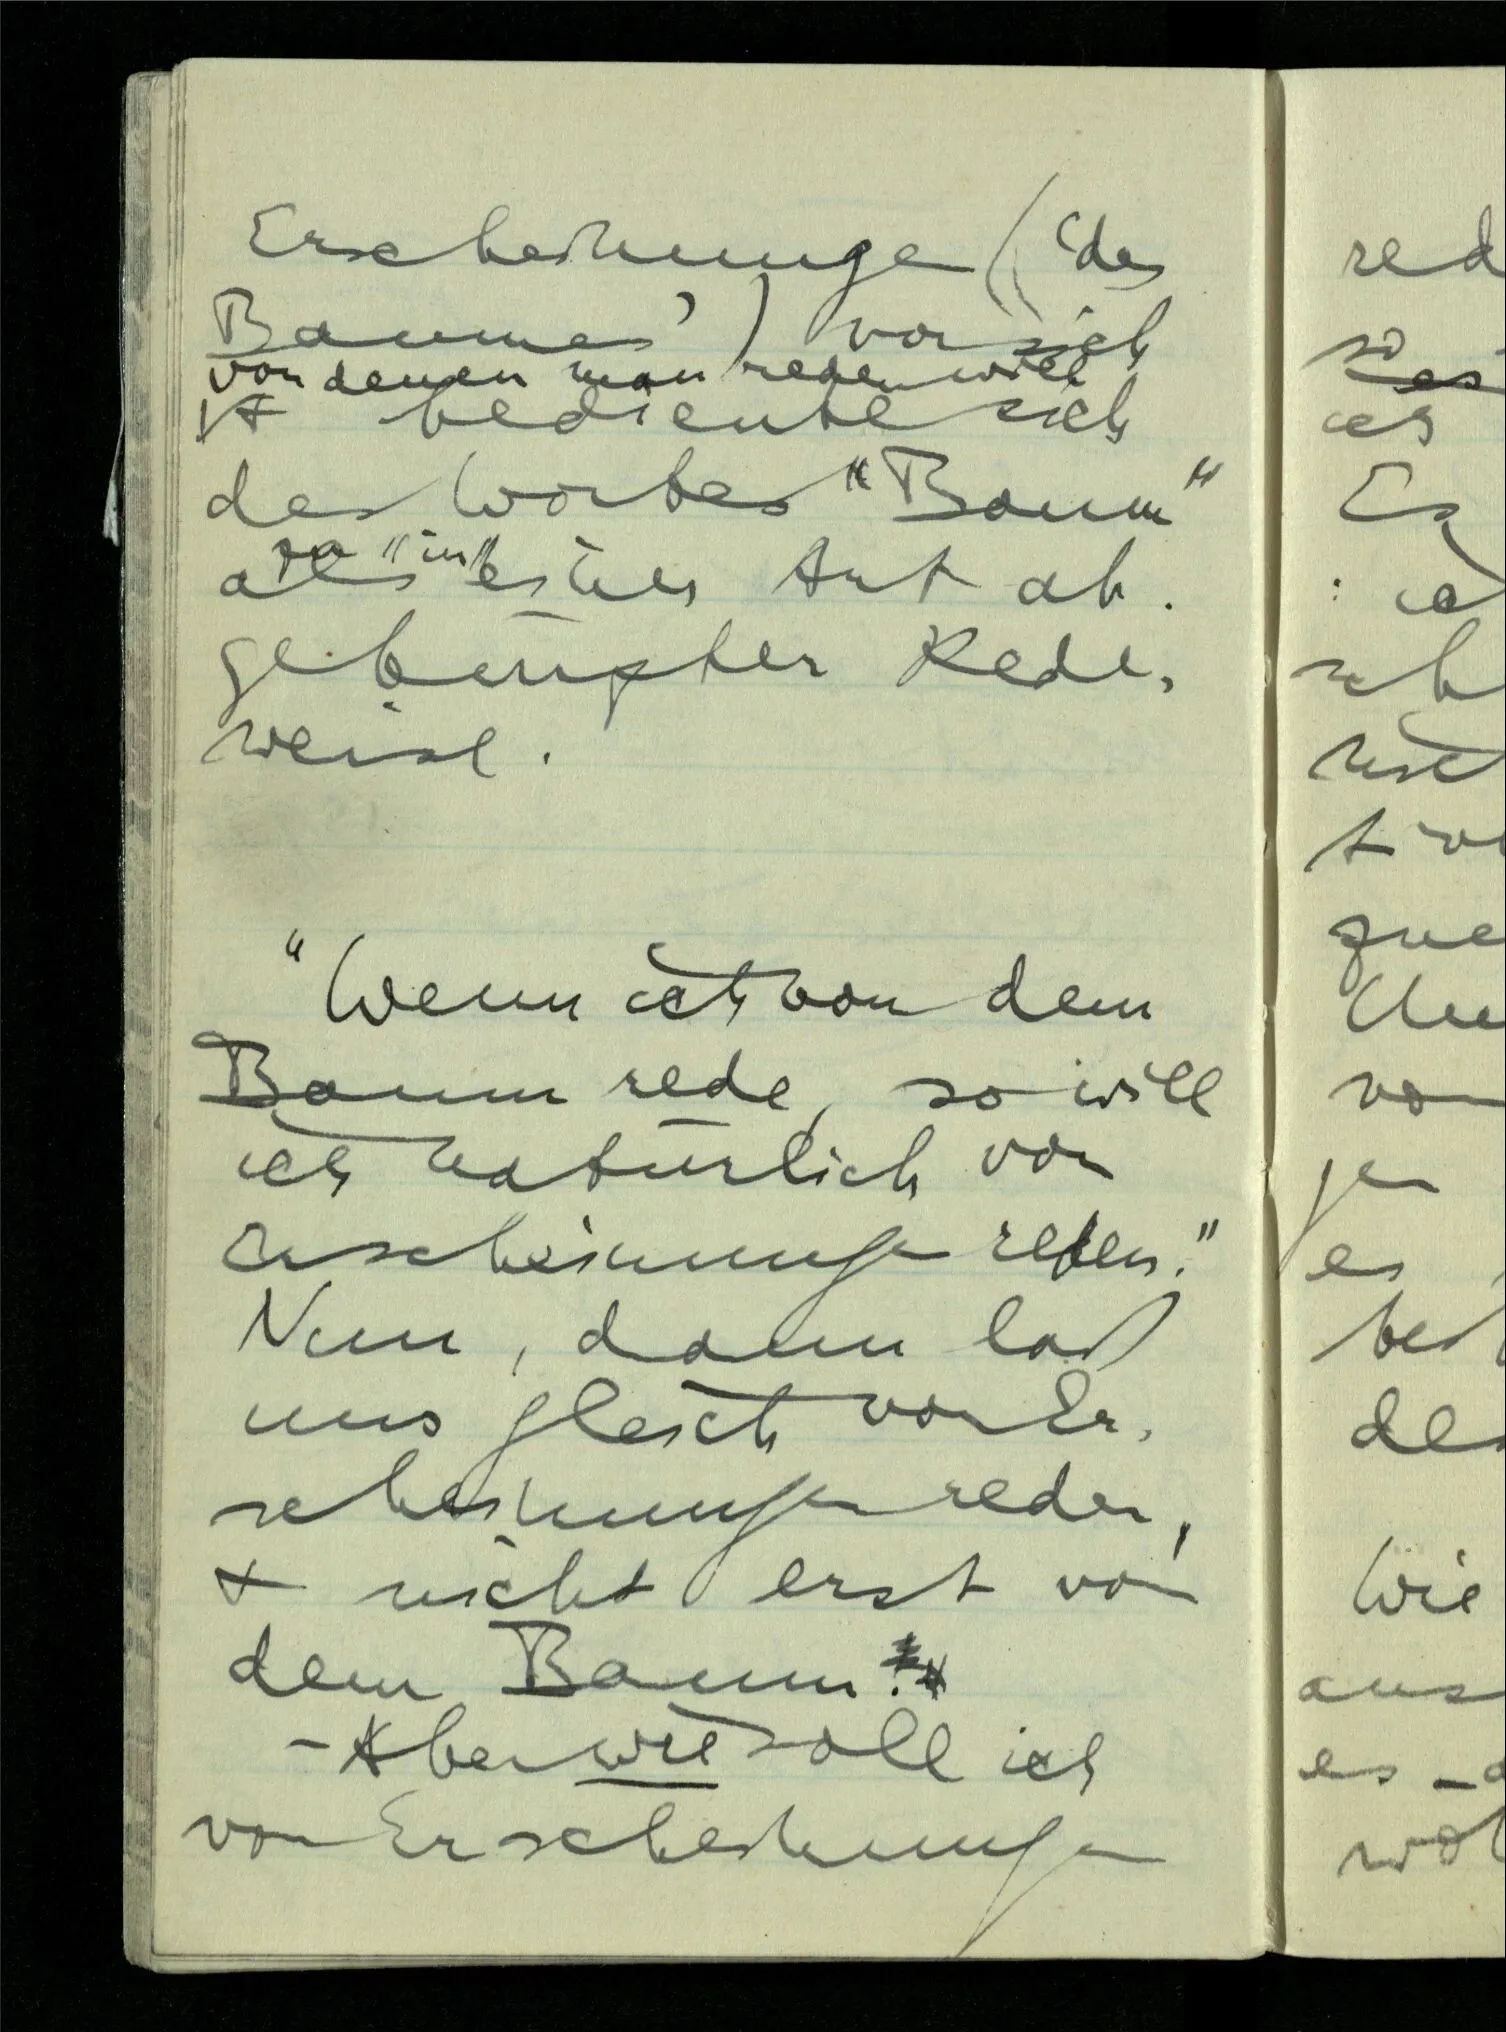 Erscheinungen ('des
Baumes') vor sich
von denen man reden will
& bediente sich
des Wortes "Baum"
so "in"
als einer Art ab-
gekürzter Rede-
weise.
"Wenn ich von dem
Baum rede, so will
ich natürlich von
Erscheinungen reden."
Nun, dann laß
uns gleich von Er-
scheinungen reden,
& nicht erst von
dem Baum!
– Aber wie soll ich
von Erscheinungen
red
so
es
ich
Es
:
sch
nicht
& vo
zue
Un
vo
je
es
bei
des
Wie
aus
es – d
wol